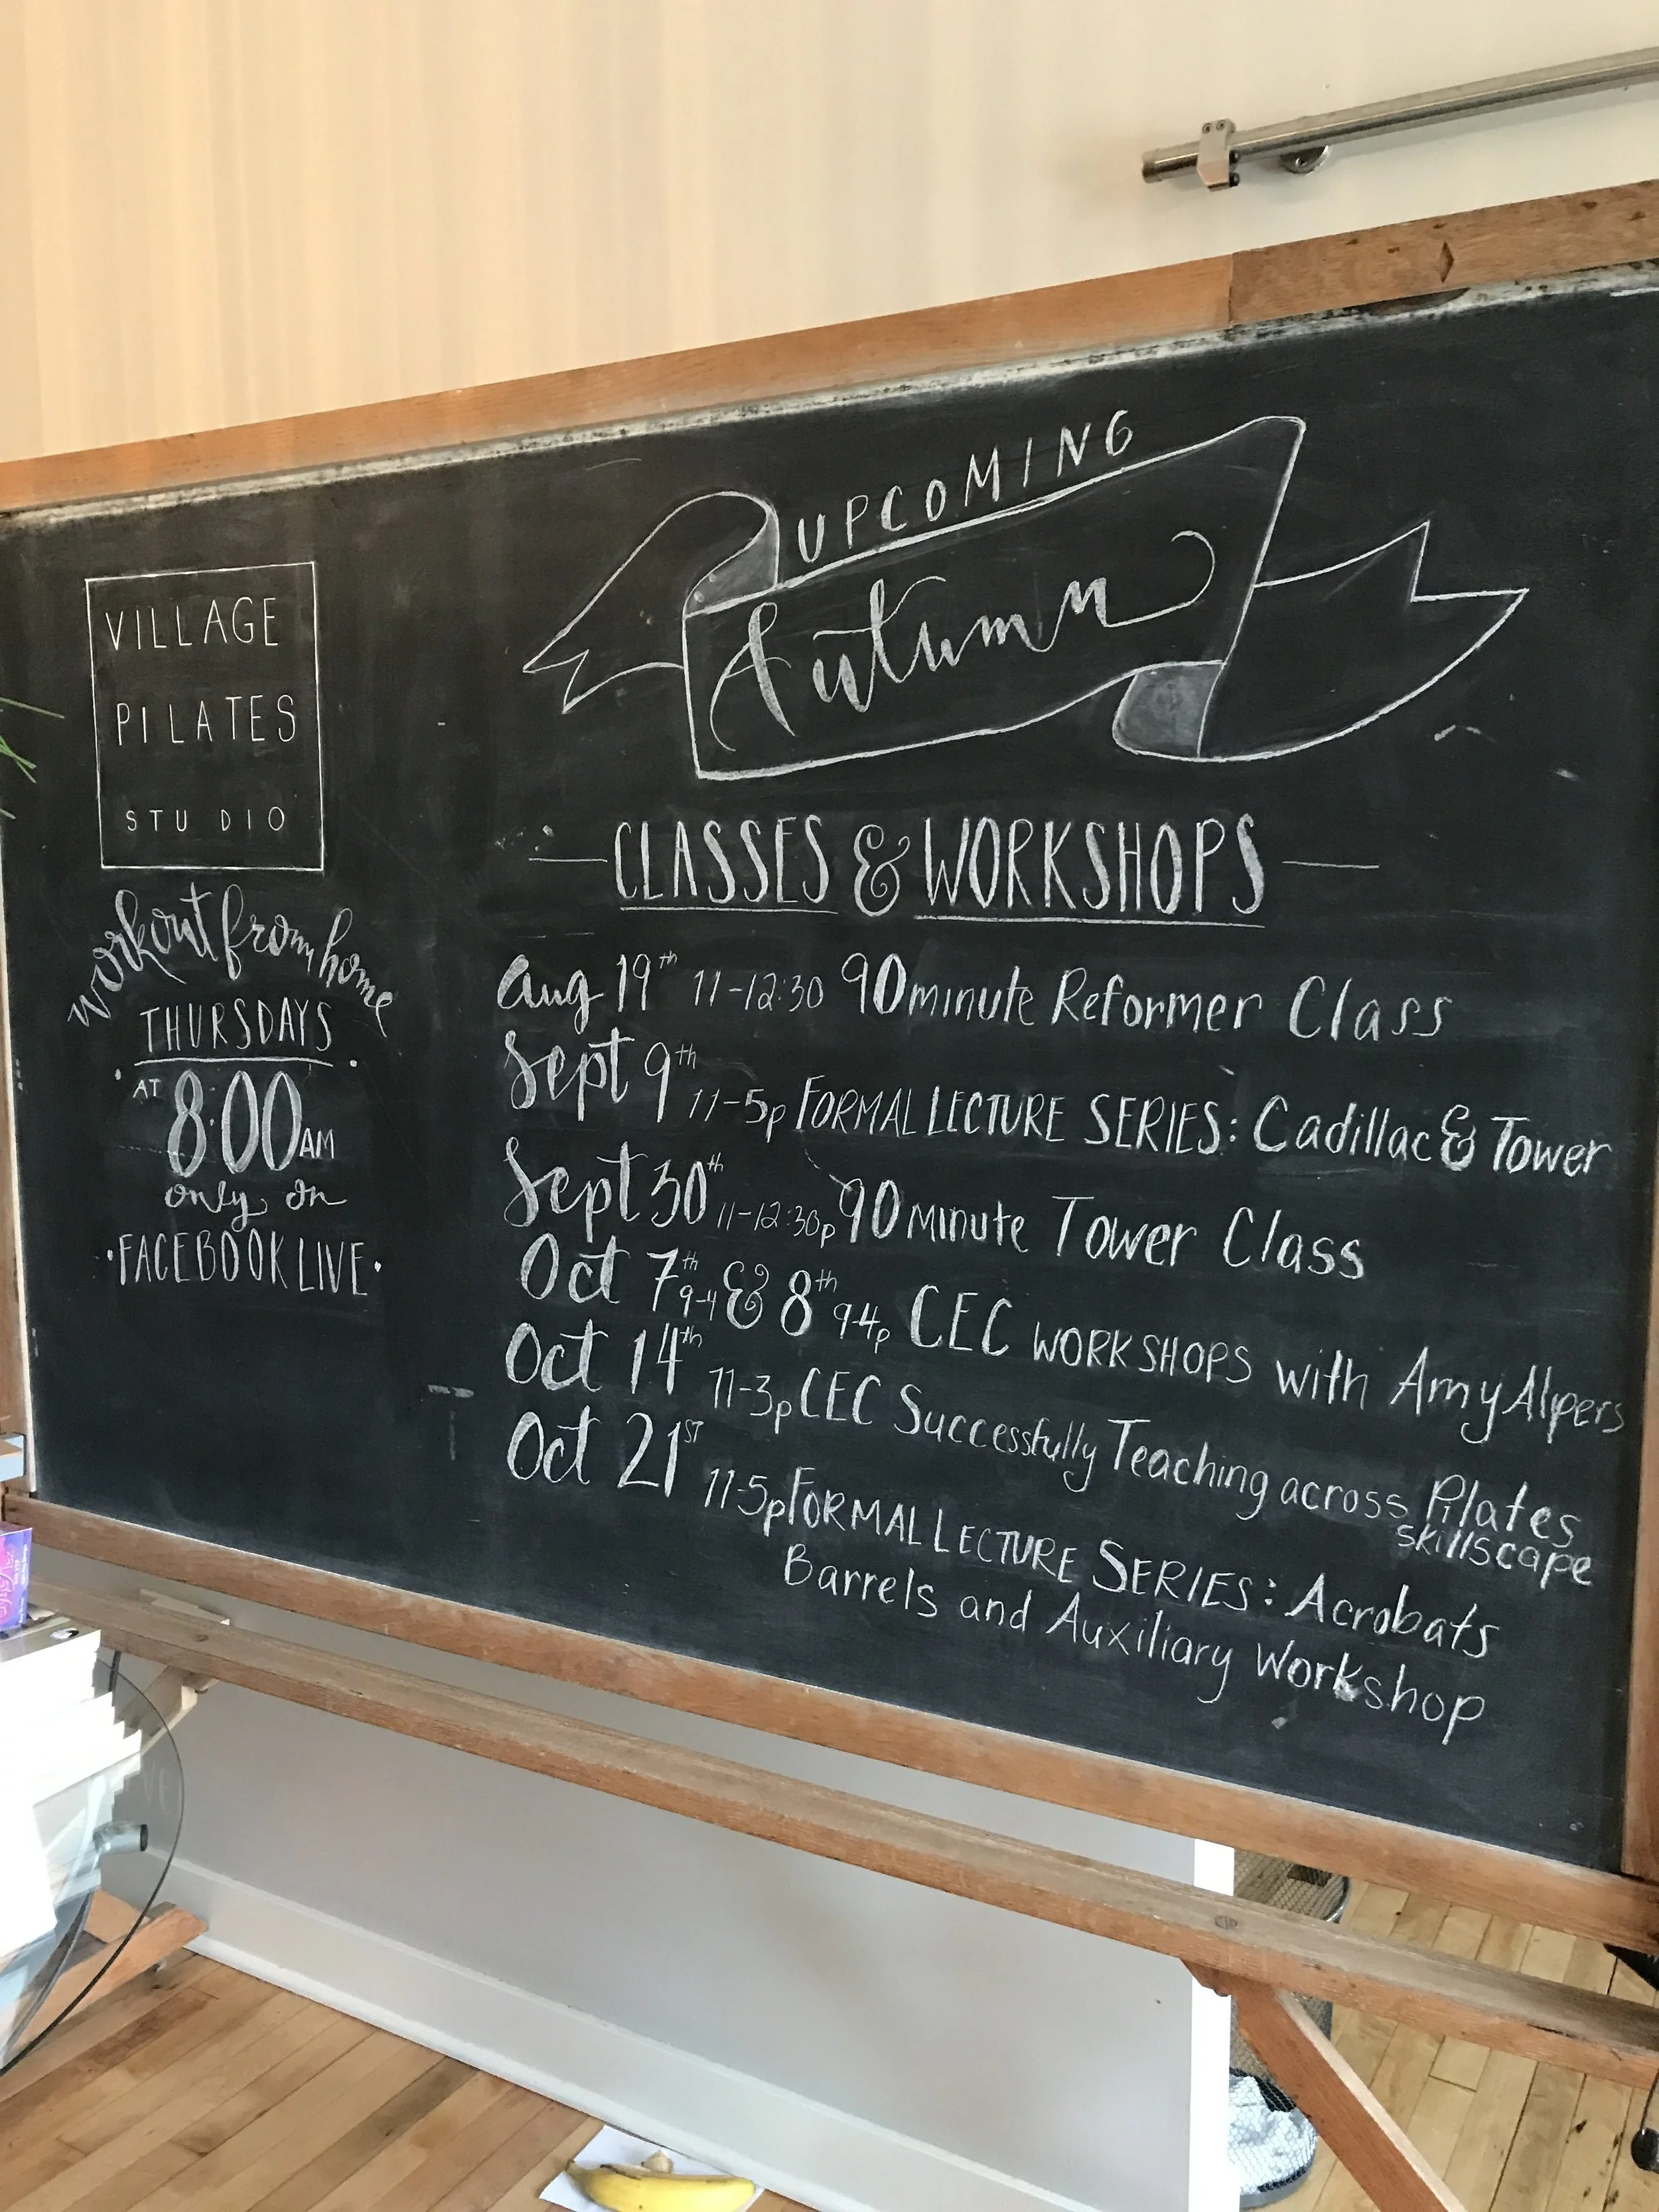 VILLAGE
PILATES
STUDIO
Workout from home
THURSDAYS
AT 8:00 AM
only on
·FACEBOOK LIVE·
UPCOMING
Autumn
CLASSES & WORKSHOPS
Aug 19th 11-12:30 90 minute Reformer Class
Sept 9th 11-5p FORMAL LECTURE SERIES: Cadillac & Tower
Sept 30th 11-12:30p 90 minute Tower Class
Oct 7th 9-4 & 8th 9-4p CEC WORKSHOPS with Amy Alpers
Oct 14th 11-3p CEC Successfully Teaching across Pilates
skillscape
Oct 21ST 11-5p FORMAL LECTURE SERIES: Acrobats
Barrels and Auxiliary Workshop